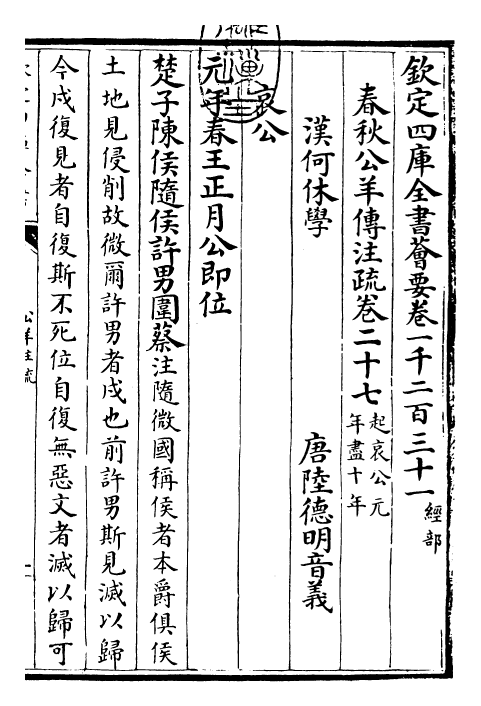 欽定四庫全書薈要卷一千二百三十一經部
春秋公羊傳注疏卷二十七起哀公元年盡十年
漢何休學 唐陸德明音義
哀公
元年春王正月公即位
楚子陳侯隨侯許男圍蔡注隨微國稱侯者本爵俱侯
土地見侵削故微爾許男者戌也前許男斯見滅以歸
今戌復見者自復斯不死位自復無惡文者滅以歸可
公羊注疏